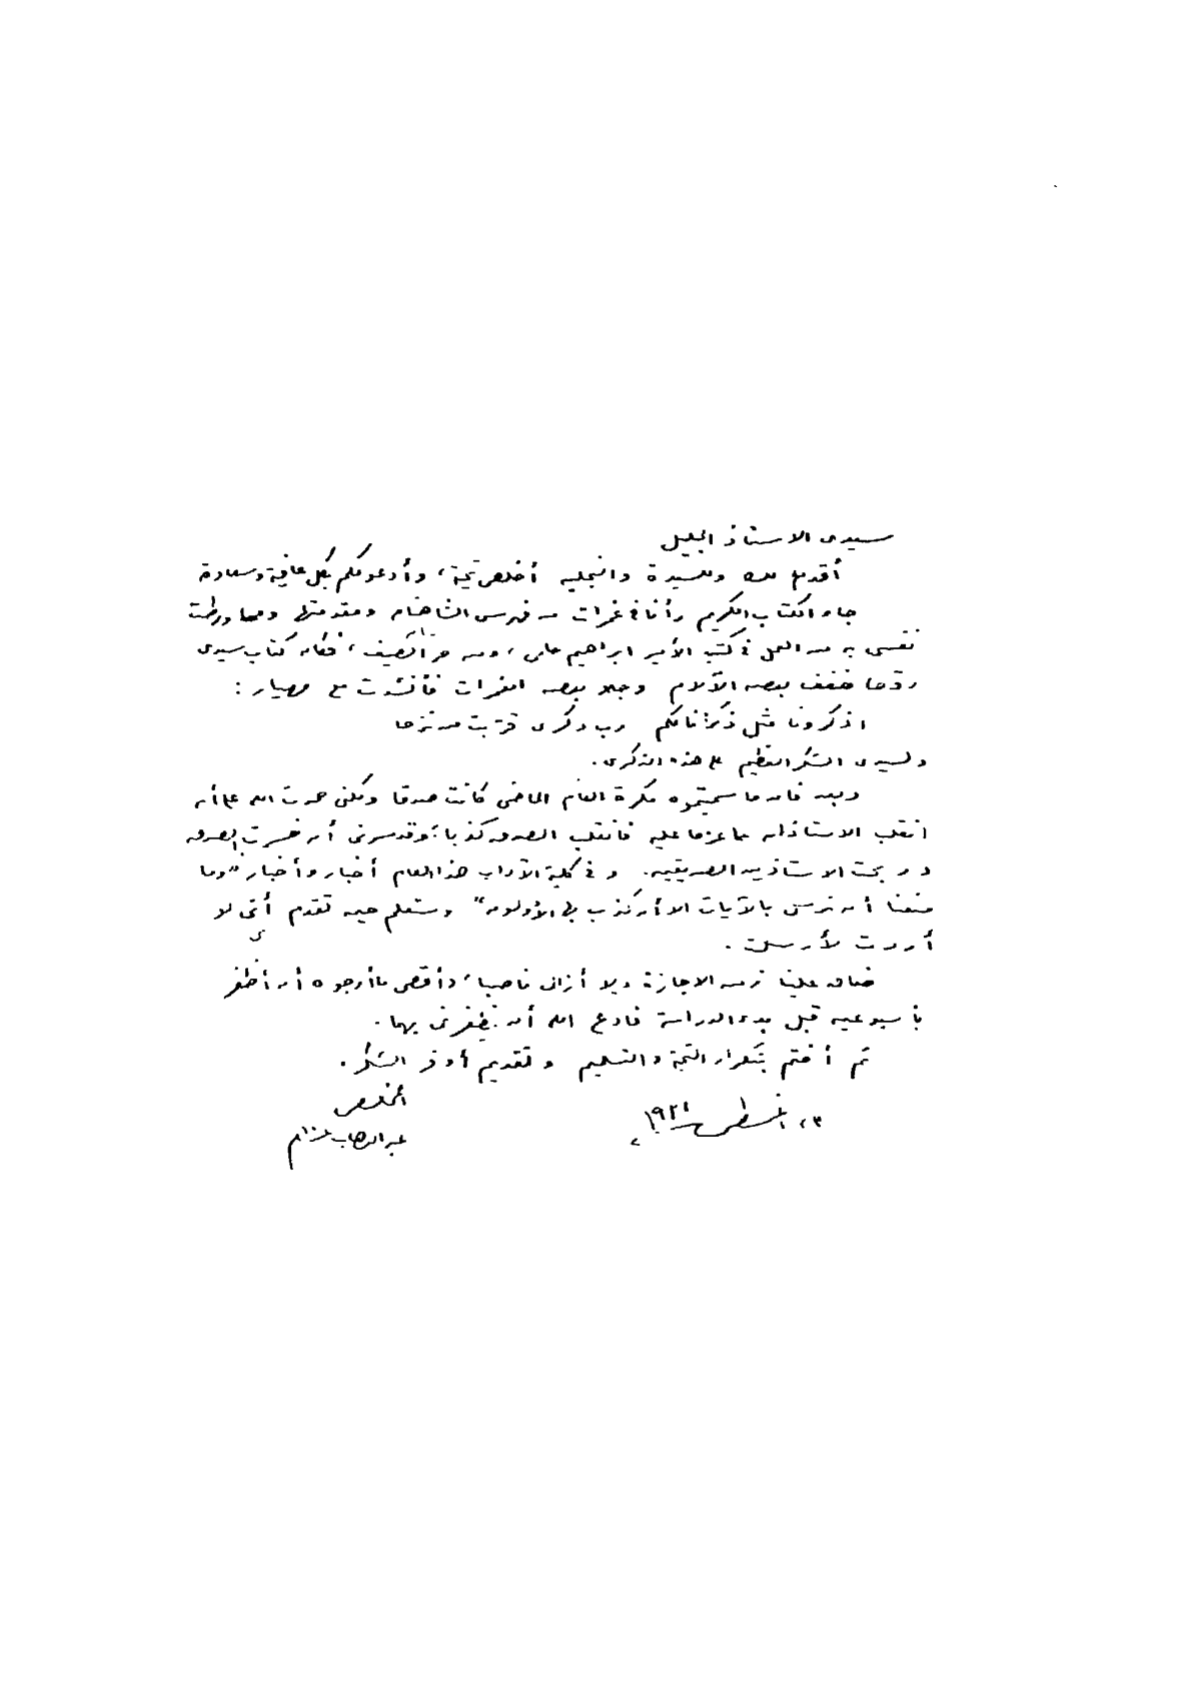 سيدى الاستاذ الجليل
أقدم لك وللسيدة والنجلين أخلص تحية، وأدعو لكم بكل عافية وسعادة
جاء الكتاب الكريم وأنا فى غمرات من فهرس الشاهنامه ومقدمتها ومما ورطت
نفسى به من العمل فى كتب الأمير ابراهيم حلمى، ومن حر الصيف، فكان كتاب سيدى
روحا خفف بعض الآلام وجلا بعض الغمرات فأنشدت مع مهيار :
اذكرونا مثل ذكرانا لكم رب ذكرى قربت من نزحا
ولسيدى الشكر العظيم على هذه الذكرى .
وبعد فان ما سميتموه مكرة العام الماضى كانت صدقا ولكنى حمدت الله على أن
انقلب الاستاذان عما عزما عليه فانقلب الصدق كذبا، وقد سرنى أن خسرت الصدق
وربحت الاستاذين الصديقين. وفى كلية الآداب هذا العام أخبار وأخبار "وما
منعنا أن نرسل بالآيات الا أن كذب بها الأولون" وستعلم حين تقدم أنى لا
أردت لأرسلت .
ضاق علينا زمن الاجازة ولا أزال ناصبا، وأقصى ما أرجوه أن أظفر
بأسبوعين قبل بدء الدراسة فادع الله أن يظفرنى بهما .
ثم أختم بتكرار التحية والتسليم وتقديم أوفر الشكر .
المخلص
عبد الوهاب عزام
٢٣ اغسطس